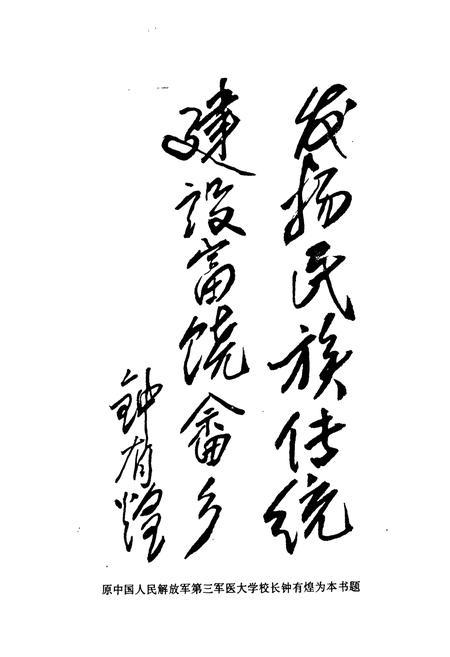 发扬民族传统
建设富饶畲乡
钟有煌
原中国人民解放军第三军医大学校长钟有煌为本书题